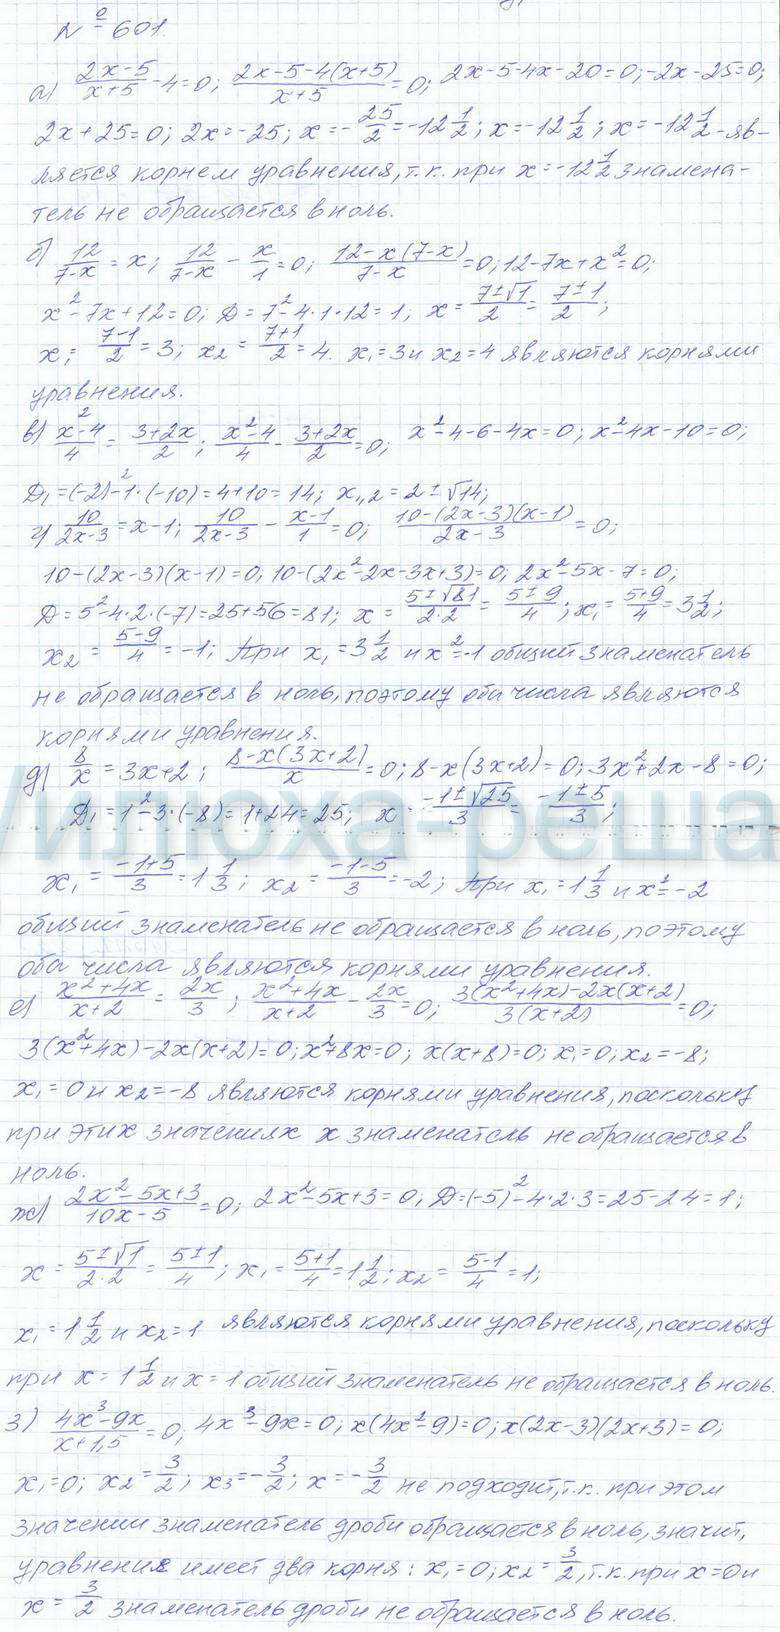 № 601.
а) (2x-5)/(x+5) - 4 = 0; (2x-5-4(x+5))/(x+5) = 0; 2x-5-4x-20=0; -2x-25=0;
2x+25=0; 2x=-25; x=-25/2=-12 1/2; x=-12 1/2; x=-12 1/2 -яв-
ляется корнем уравнения, т.к. при x=-12 1/2 знамена-
тель не обращается в ноль.
б) 12/(7-x) = x; 12/(7-x) - x/1 = 0; (12-x(7-x))/(7-x) = 0; 12-7x+x²=0;
x²-7x+12=0; D=7²-4·1·12=1; x=(7±√1)/2=(7±1)/2;
x₁=(7-1)/2=3; x₂=(7+1)/2=4. x₁=3 и x₂=4 являются корнями
уравнения.
в) (x²-4)/4 = (3+2x)/2; (x²-4)/4 - (3+2x)/2 = 0; x²-4-6-4x=0; x²-4x-10=0;
D₁=(-2)²-1·(-10)=4+10=14; x₁,₂=2±√14;
г) 10/(2x-3) = x-1; 10/(2x-3) - (x-1)/1 = 0; (10-(2x-3)(x-1))/(2x-3) = 0;
10-(2x-3)(x-1)=0; 10-(2x²-2x-3x+3)=0; 2x²-5x-7=0;
D=5²-4·2·(-7)=25+56=81; x=(5±√81)/(2·2)=(5±9)/4; x₁=(5+9)/4=3 1/2;
x₂=(5-9)/4=-1; При x₁=3 1/2 и x₂=-1 общий знаменатель
не обращается в ноль, поэтому оба числа являются
корнями уравнения.
д) 8/x = 3x+2; (8-x(3x+2))/x = 0; 8-x(3x+2)=0; 3x²+2x-8=0;
D₁=1²-3·(-8)=1+24=25; x=(-1±√25)/3=(-1±5)/3;
илюха-реша
x₁=(-1+5)/3=1 1/3; x₂=(-1-5)/3=-2; При x₁=1 1/3 и x₂=-2
общий знаменатель не обращается в ноль, поэтому
оба числа являются корнями уравнения.
е) (x²+4x)/(x+2) = 2x/3; (x²+4x)/(x+2) - 2x/3 = 0; (3(x²+4x)-2x(x+2))/(3(x+2)) = 0;
3(x²+4x)-2x(x+2)=0; x²+8x=0; x(x+8)=0; x₁=0; x₂=-8;
x₁=0 и x₂=-8 являются корнями уравнения, поскольку
при этих значениях x знаменатель не обращается в
ноль.
ж) (2x²-5x+3)/(10x-5) = 0; 2x²-5x+3=0; D=(-5)²-4·2·3=25-24=1;
x=(5±√1)/(2·2)=(5±1)/4; x₁=(5+1)/4=1 1/2; x₂=(5-1)/4=1;
x₁=1 1/2 и x₂=1 являются корнями уравнения, поскольку
при x=1 1/2 и x=1 общий знаменатель не обращается в ноль.
з) (4x³-9x)/(x+1,5) = 0; 4x³-9x=0; x(4x²-9)=0; x(2x-3)(2x+3)=0;
x₁=0; x₂=3/2; x₃=-3/2; x=-3/2 не подходит, т.к. при этом
значении знаменатель дроби обращается в ноль, значит,
уравнение имеет два корня: x₁=0; x₂=3/2, т.к. при x=0 и
x=3/2 знаменатель дроби не обращается в ноль.